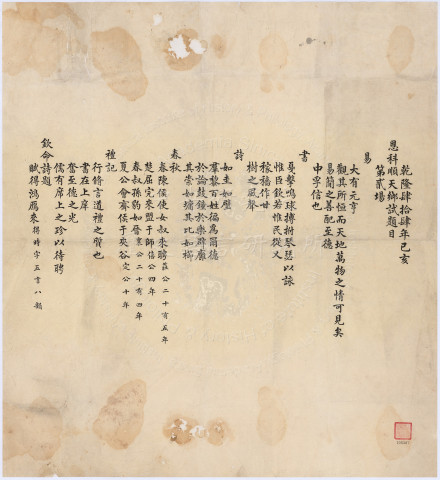 乾隆肆拾肆年己亥
恩科順天鄉試題目
第貳場
易
大有元亨
觀其所恒而天地萬物之情可見矣
易簡之善配至德
中孚信也
書
戛擊鳴球搏拊琴瑟以詠
惟臣欽若惟民從乂
稼穡作甘
樹之風聲
詩
如圭如璧
羣黎百姓徧為爾德
於論鼓鐘於樂辟廱
其崇如墉其比如櫛
春秋
春陳侯使女叔來聘莊公二十有五年
楚屈完來盟于師僖公四年
春叔孫豹如晉襄公二十有四年
夏公會齊侯于夾谷定公十年
禮記
行脩言道禮之質也
書在上庠
奮至德之光
儒有席上之珍以待聘
欽命詩題
賦得鴻鴈來得時字五言八韻